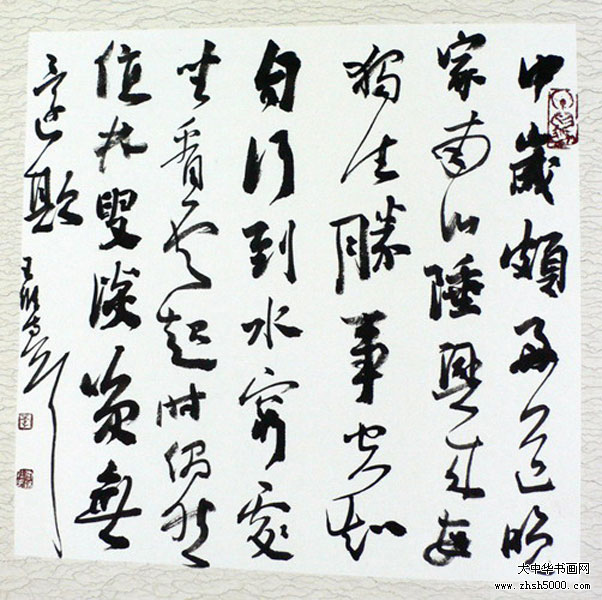 中歲頗好道晚
家南山陲興來每
獨往勝事空知
自行到水窮處
坐看雲起時偶然
值林叟談笑無
還期
王維詩
大中华书画网
www.zhsh5000.com